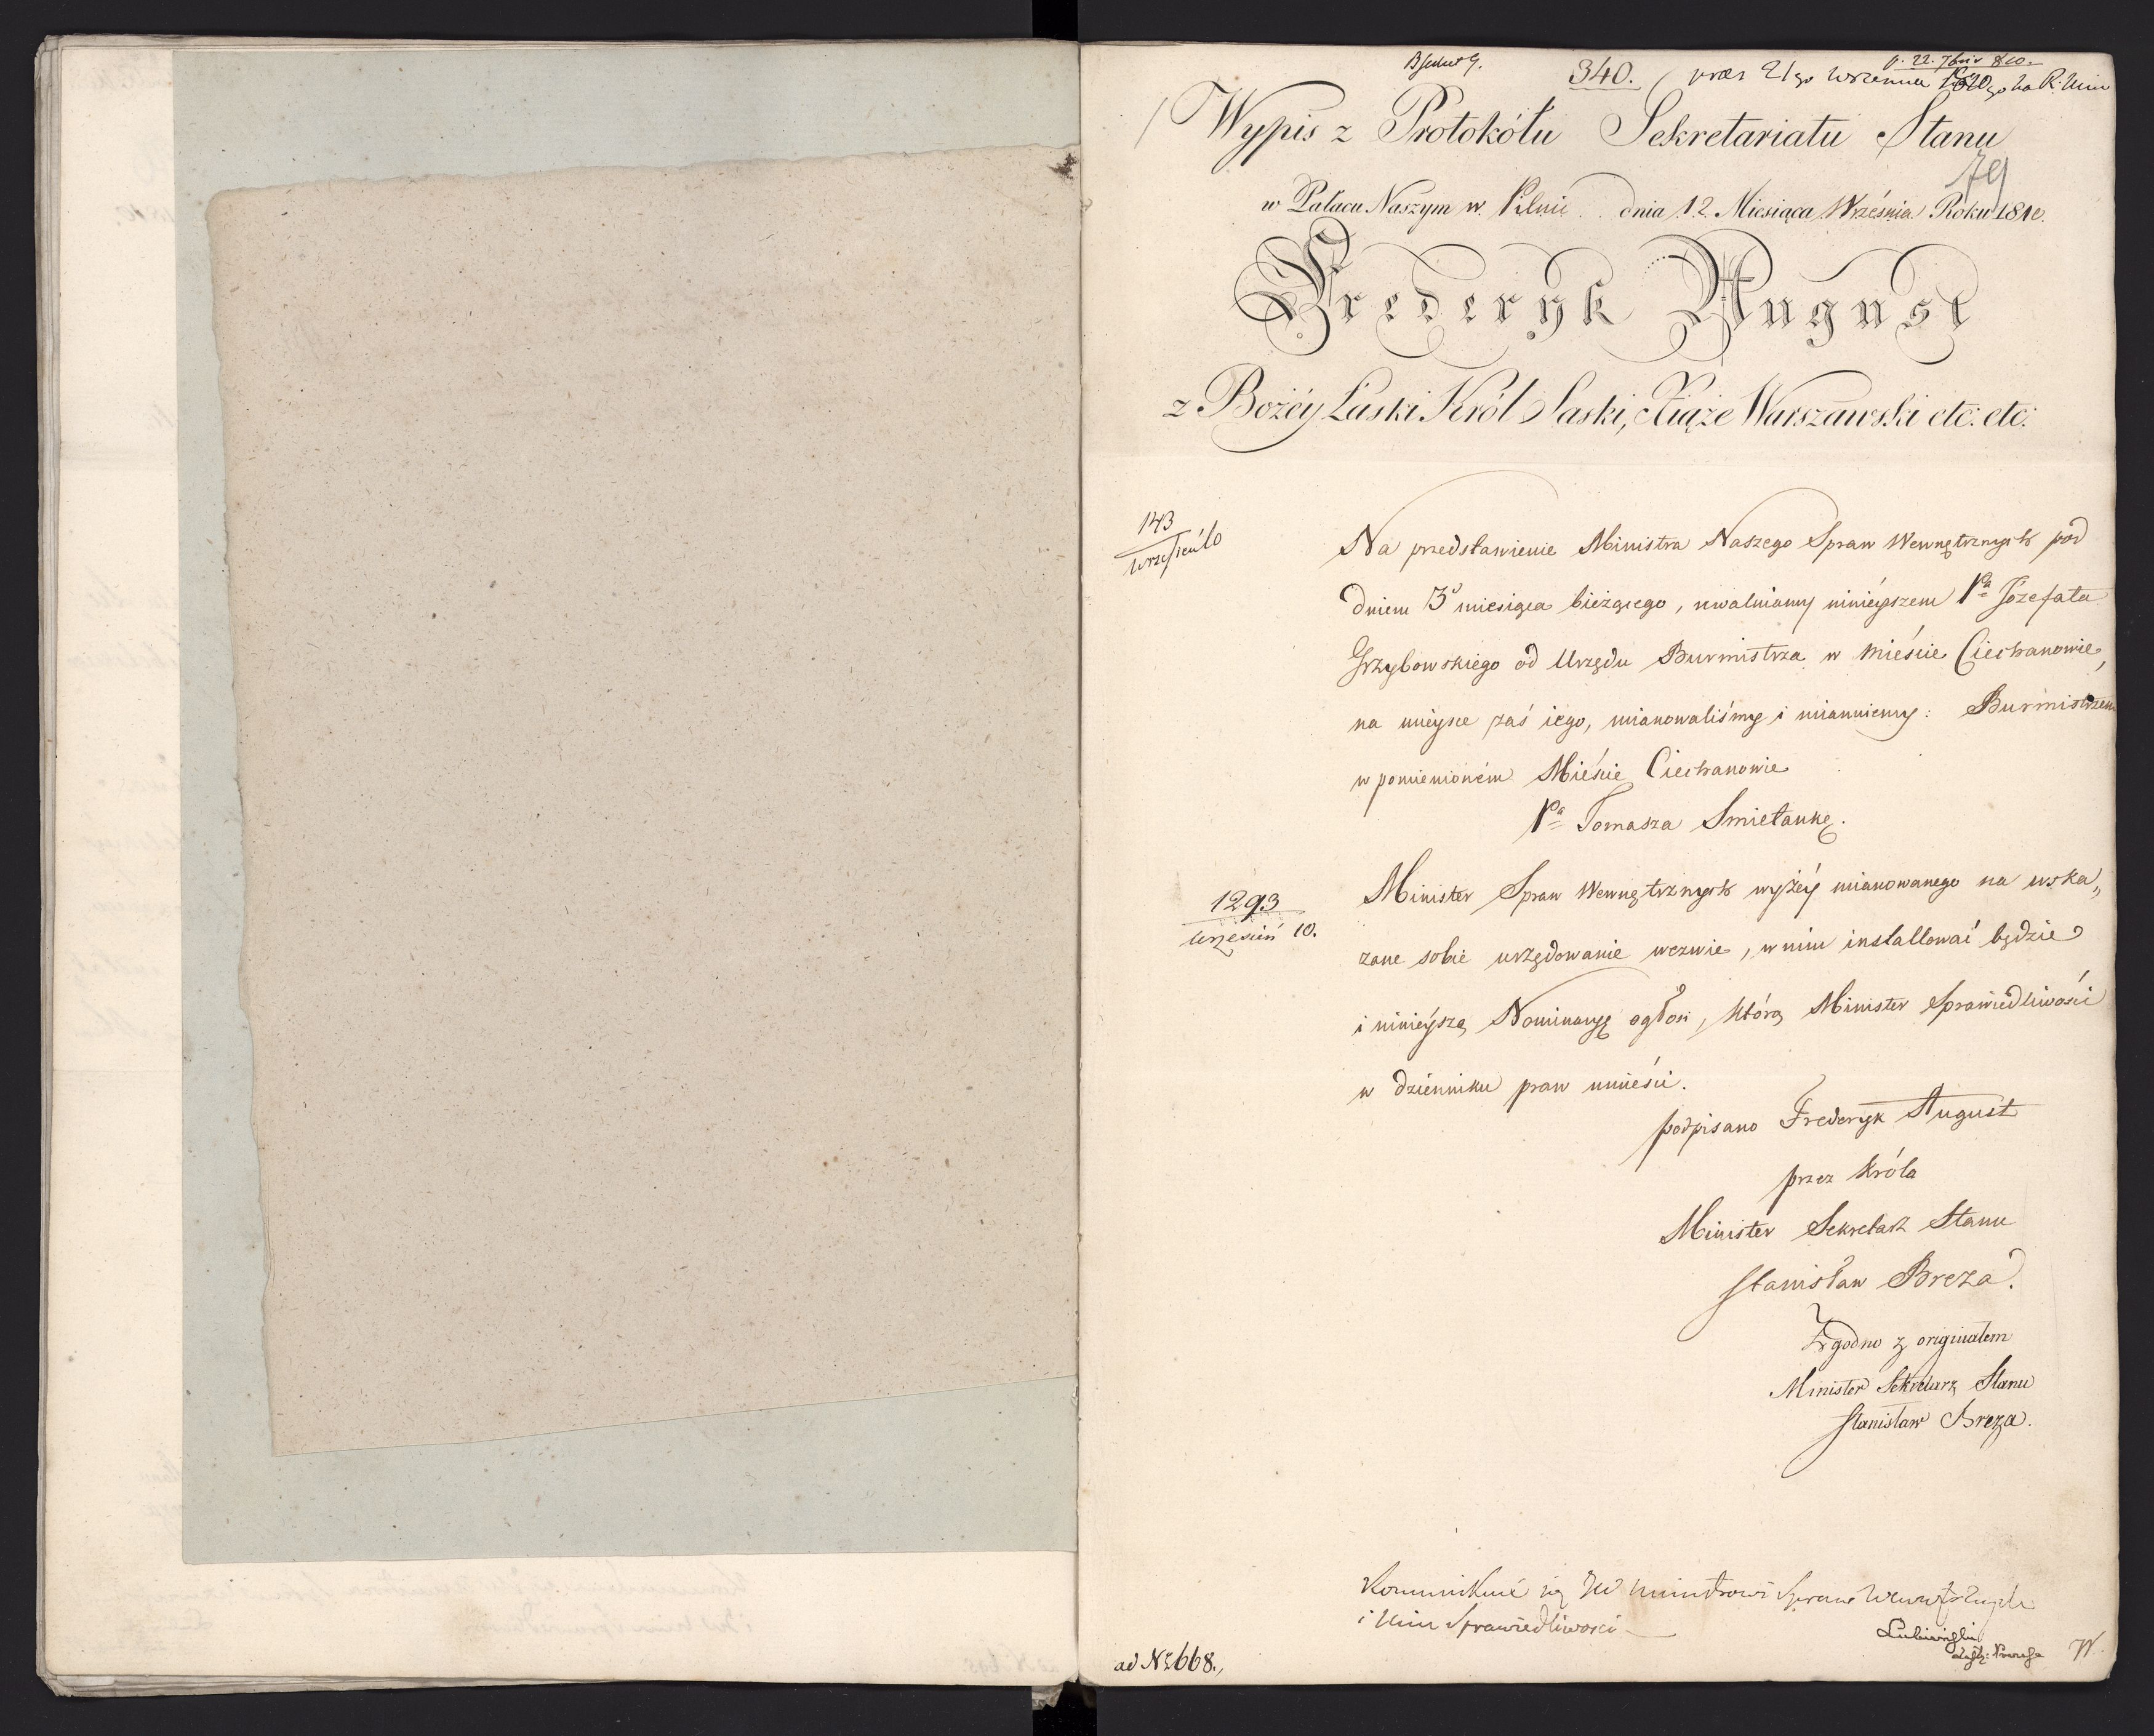 340. prær 21go września 1810go na R. Min
p. 22. 7bris 810.
Wypis z Protokółu Sekretariatu Stanu
79
w Pałacu Naszym w Pilnic dnia 12 Miesiąca Września Roku 1810
Fryderyk August
z Bożéy Łaski Król Saski, Xiąże Warszawski etc: etc:
143
wrzesień 10
Na przedstawienie Ministra Naszego Spraw Wewnętrznych pod
dniem 3º miesiąca bieżącego, uwalniamy ninieyszem Pa Józefata
Grzybowskiego od Urzędu Burmistrza w mieście Ciechanowie,
na mieysce zaś iego, mianowaliśmy i mianuiemy: Burmistrzem
w pomienioném Mieście Ciechanowie
Pa Tomasza Smietankę.
1293
wrzesień 10.
Minister Spraw Wewnętrznych wyżéy mianowanego na wska„
zane sobie urzędowanie wezwie, w nim installować będzie
i ninieyszą Nominacyę ogłosi, którą Minister Sprawiedliwości
w dzienniku praw umieści.
podpisano Frederyk August
przez Króla
Minister Sekretarz Stanu
Stanisław Breza.
Zgodno z originałem
Minister Sekretarz Stanu
Stanisław Breza.
Kommunikuie się JW Ministrowi Spraw Wewnętrznych
i Min Sprawiedliwości
Lubieński
ad Nr 668.,